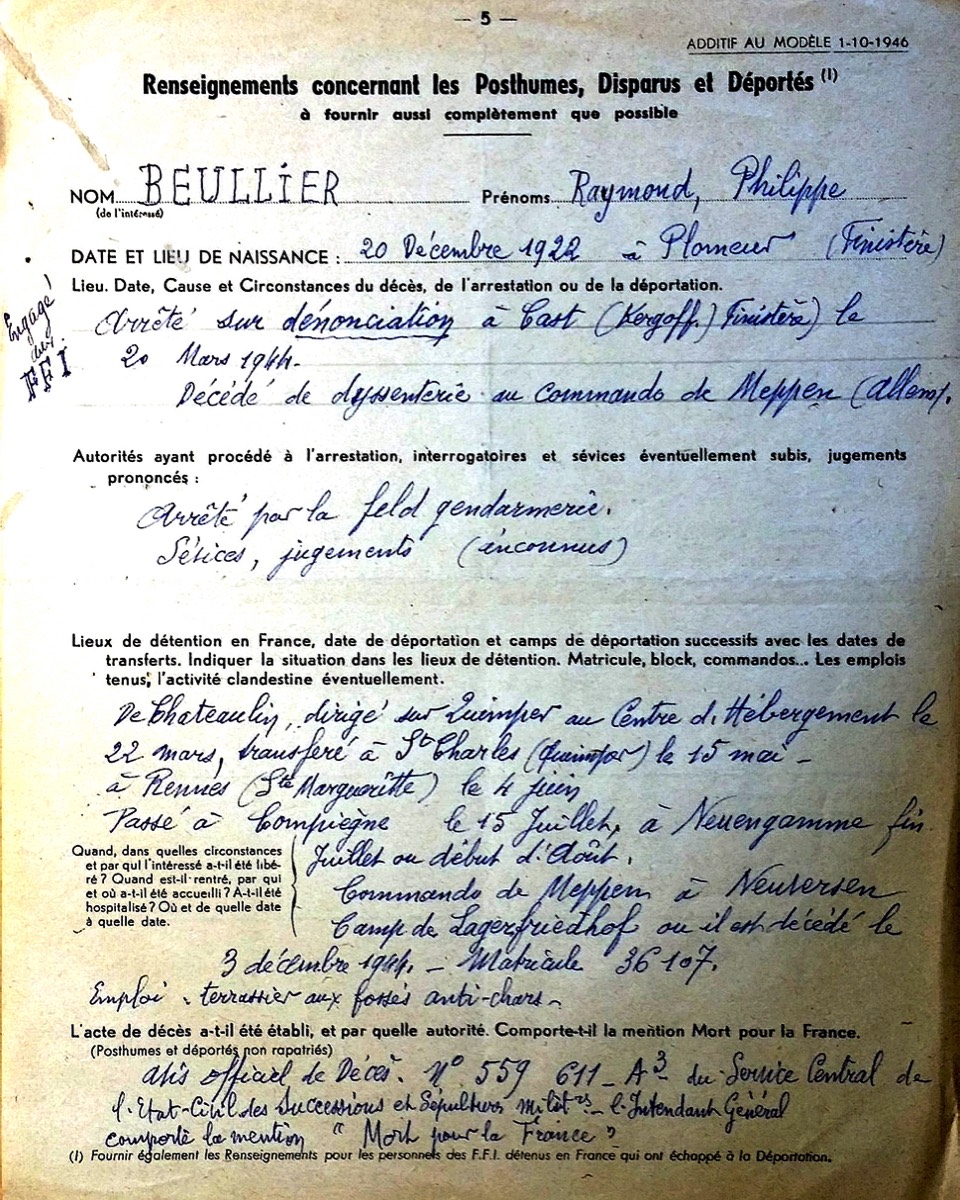 — 5 —
ADDITIF AU MODÈLE 1-10-1946
Renseignements concernant les Posthumes, Disparus et Déportés (1)
à fournir aussi complètement que possible
NOM BEULLIER Prénoms Raymond, Philippe
(de l'intéressé)
DATE ET LIEU DE NAISSANCE : 20 Décembre 1922 à Plomeur (Finistère)
Lieu. Date, Cause et Circonstances du décès, de l'arrestation ou de la déportation.
Engagé
aux
FFI
Arrêté sur dénonciation à Cast (Kergoff.) Finistère) le
20 Mars 1944.
Décédé de dyssenterie au commando de Meppen (Allem).
Autorités ayant procédé à l'arrestation, interrogatoires et sévices éventuellement subis, jugements
prononcés :
Arrêté par la feld gendarmerie.
Sévices, jugements (inconnus)
Lieux de détention en France, date de déportation et camps de déportation successifs avec les dates de
transferts. Indiquer la situation dans les lieux de détention. Matricule, block, commandos... Les emplois
tenus, l'activité clandestine éventuellement.
De Chateaulin, dirigé sur Quimper au Centre d'Hébergement le
22 mars, transféré à St Charles (Quimper) le 15 mai -
à Rennes (Ste Margueritte) le 4 juin
Passé à Compiègne le 15 Juillet, à Neuengamme fin
Juillet ou début d'Août.
Quand, dans quelles circonstances
et par qui l'intéressé a-t-il été libé-
ré ? Quand est-il rentré, par qui
et où a-t-il été accueilli ? A-t-il été
hospitalisé ? Où et de quelle date
à quelle date.
Commando de Meppen à Neuversen
Camp de Lagerfriedhof ou il est décédé le
3 décembre 1944. - Matricule 36107.
Emploi : terrassier aux fossés anti-chars -
L'acte de décès a-t-il été établi, et par quelle autorité. Comporte-t-il la mention Mort pour la France.
(Posthumes et déportés non rapatriés)
Avis officiel de Décès. N° 559 611 - A3 - du Service Central de
l'Etat-Civil des Successions et Sépultures milit res - l'Intendant Général
comporte la mention "Mort pour la France"
(1) Fournir également les Renseignements pour les personnels des F.F.I. détenus en France qui ont échappé à la Déportation.